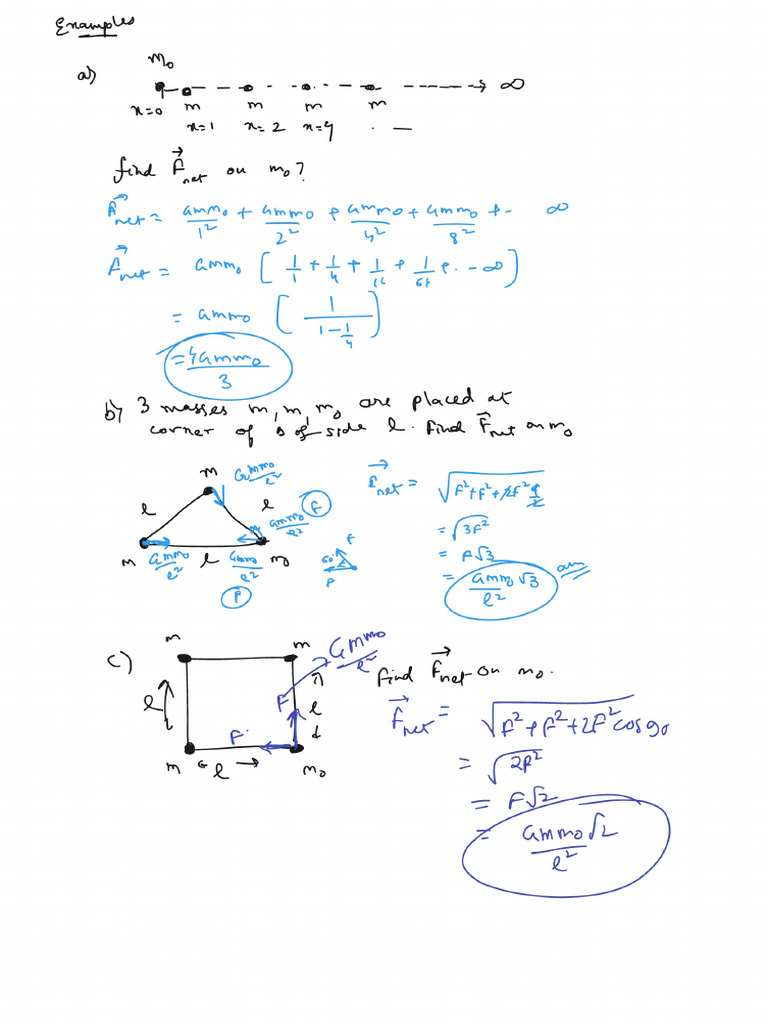 Examples
a)
m₀
∞
x=0 m m m m
x=1 x=2 x=4 . —
find F⃗net on m₀?
F⃗net = Gmm₀/1² + Gmm₀/2² + Gmm₀/4² + Gmm₀/8² + - ∞
F⃗net = Gmm₀ [ 1/1 + 1/4 + 1/16 + 1/64 + . - ∞ ]
= Gmm₀ [ 1/(1-1/4) ]
= 4Gmm₀/3
b) 3 masses m, m, m₀ are placed at
corner of Δ of side l. find F⃗net on m₀
m Gmm₀/l²
l l F
Gmm₀/l²
m Gmm₀/l² l Gmm₀/l² m₀
F
60° F
F
F⃗net = √(F²+F²+2F² 1/2)
= √3F²
= F√3
= Gmm₀√3/l² ans
c)
m m Gmm₀/l²
find F⃗net on m₀.
l F l
F
m l m₀
F⃗net = √(F²+F²+2F² cos90)
= √2F²
= F√2
= Gmm₀√2/l²